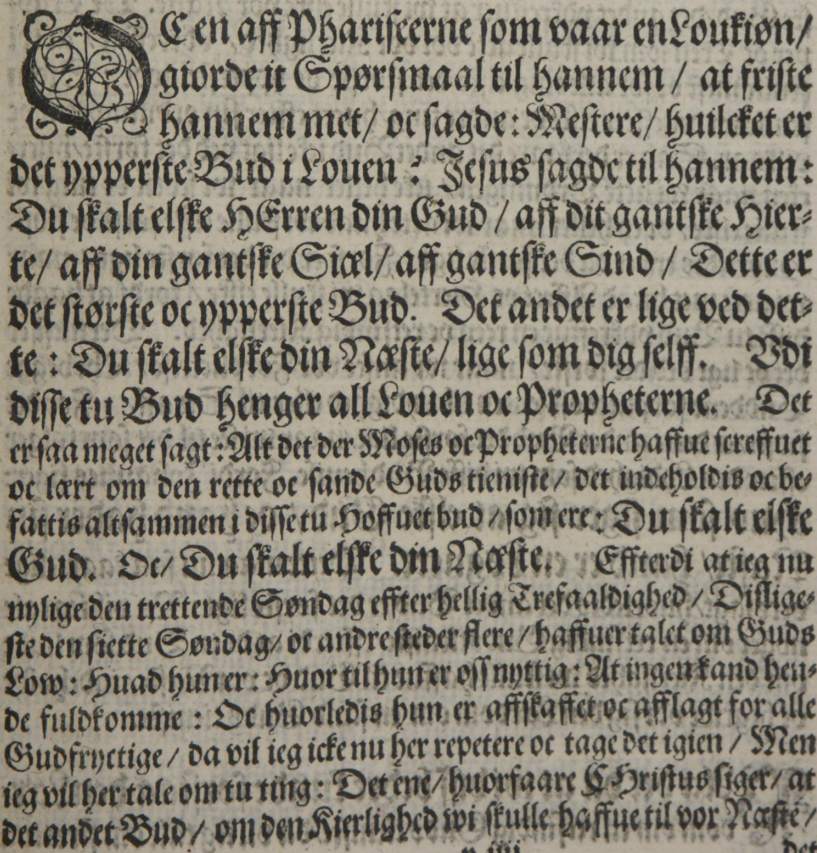 OC en aff Phariseerne som vaar en Loukiøn/
giorde it Spørsmaal til hannem / at friste
hannem met/ oc sagde: Mestere/ huilcket er
det ypperste Bud i Louen ? Jesus sagde til hannem:
Du skalt elske HErren din Gud / aff dit gantske Hier-
te/ aff din gantske Siæl/ aff gantske Sind / Dette er
det største oc ypperste Bud. Det andet er lige ved det-
te : Du skalt elske din Næste/ lige som dig selff. Vdi
disse tu Bud henger all Louen oc Propheterne. Det
er saa meget sagt: Alt det der Moses oc Propheterne haffue screffuet
oc lært om den rette oc sande Guds tieniste/ det indeholdis oc be-
fattis altsammen i disse tu Hoffuet bud / som ere: Du skalt elske
Gud. Oc/ Du skalt elske din Næste. Effterdi at ieg nu
nylige den trettende Søndag effter hellig Trefaaldighed / Dislige-
ste den siette Søndag/ oc andre steder flere / haffuer talet om Guds
Low: Huad hun er: Huor til hun er oss nyttig: At ingen kand hen-
de fuldkomme : Oc huorledis hun er affskaffet oc afflagt for alle
Gudfryctige / da vil ieg icke nu her repetere oc tage det igien / Men
ieg vil her tale om tu ting: Det ene/ huorfaare CHristus siger/ at
det andet Bud / om den Kierlighed wi skulle haffue til vor Næste /
det